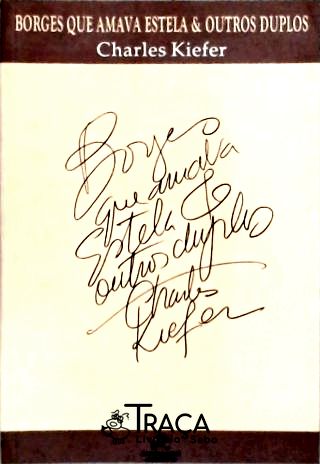 BORGES QUE AMAVA ESTELA & OUTROS DUPLOS
Charles Kiefer
Borges
que amava
Estela &
outros duplos
Charles
Kiefer
TRAÇA
Livraria e Sebo